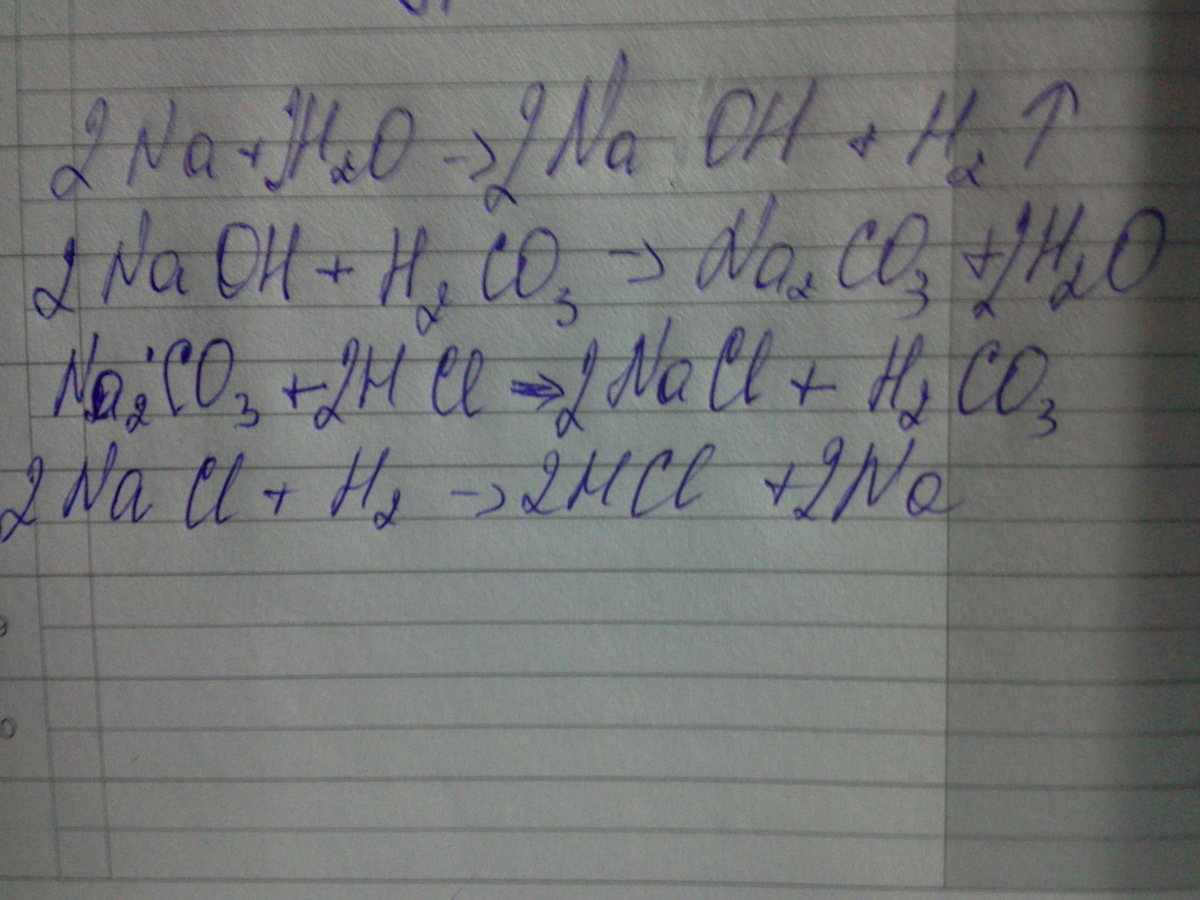 2Na + 2H₂O → 2NaOH + H₂↑
2NaOH + H₂CO₃ → Na₂CO₃ + 2H₂O
Na₂CO₃ + 2HCl → 2NaCl + H₂CO₃
2NaCl + H₂ → 2HCl + 2Na